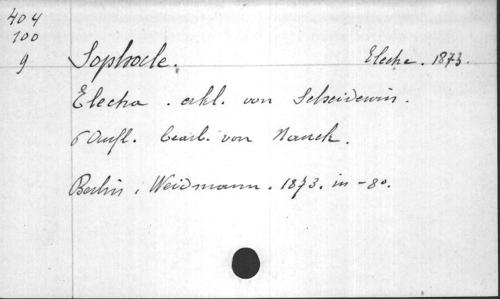 404
100
9
Sophocle. Electre. 1873.
Electra. erkl. von Schneidewin.
6 Aufl. bearb. von Nauck.
Berlin, Weidmann. 1873. in-8o.